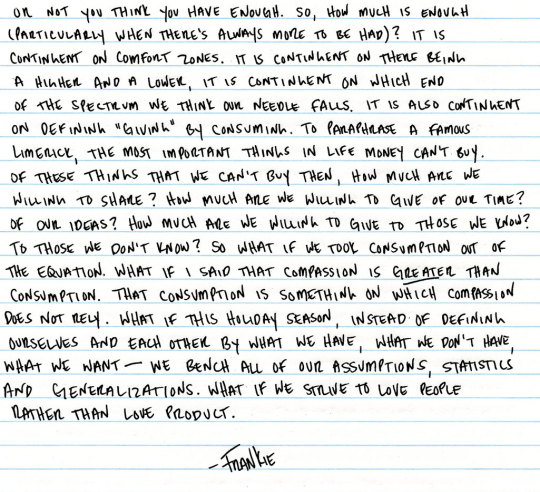 OR NOT YOU THINK YOU HAVE ENOUGH. SO, HOW MUCH IS ENOUGH
(PARTICULARLY WHEN THERE'S ALWAYS MORE TO BE HAD)? IT IS
CONTINGENT ON COMFORT ZONES. IT IS CONTINGENT ON THERE BEING
A HIGHER AND A LOWER, IT IS CONTINGENT ON WHICH END
OF THE SPECTRUM WE THINK OUR NEEDLE FALLS. IT IS ALSO CONTINGENT
ON DEFINING "GIVING" BY CONSUMING. TO PARAPHRASE A FAMOUS
LIMERICK, THE MOST IMPORTANT THINGS IN LIFE MONEY CAN'T BUY.
OF THESE THINGS THAT WE CAN'T BUY THEN, HOW MUCH ARE WE
WILLING TO SHARE? HOW MUCH ARE WE WILLING TO GIVE OF OUR TIME?
OF OUR IDEAS? HOW MUCH ARE WE WILLING TO GIVE TO THOSE WE KNOW?
TO THOSE WE DON'T KNOW? SO WHAT IF WE TOOK CONSUMPTION OUT OF
THE EQUATION. WHAT IF I SAID THAT COMPASSION IS GREATER THAN
CONSUMPTION. THAT CONSUMPTION IS SOMETHING ON WHICH COMPASSION
DOES NOT RELY. WHAT IF THIS HOLIDAY SEASON, INSTEAD OF DEFINING
OURSELVES AND EACH OTHER BY WHAT WE HAVE, WHAT WE DON'T HAVE,
WHAT WE WANT — WE BENCH ALL OF OUR ASSUMPTIONS, STATISTICS
AND GENERALIZATIONS. WHAT IF WE STRIVE TO LOVE PEOPLE
RATHER THAN LOVE PRODUCT.
- FRANKIE